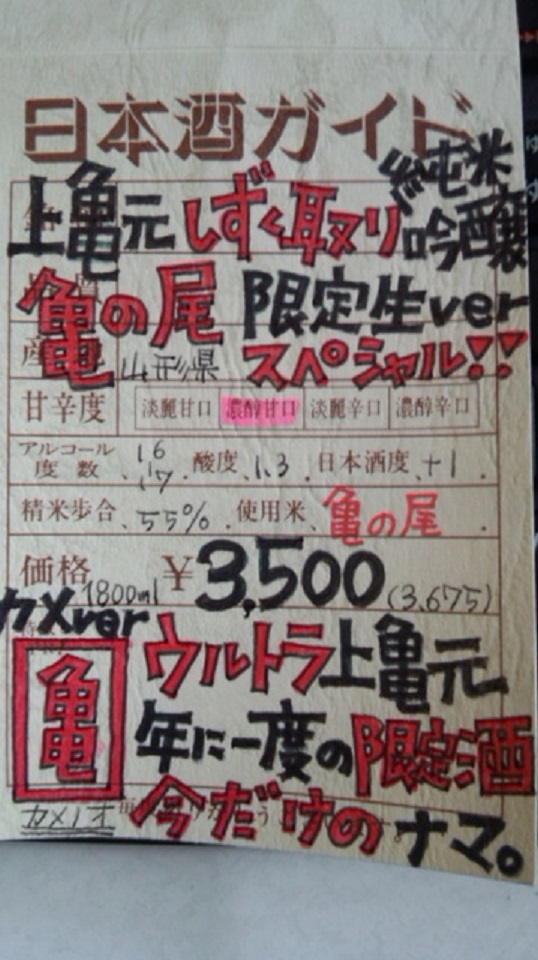 日本酒ガイド
純米
上亀元 しずく取り 吟醸
亀の尾 限定生ver
山形県 スペシャル!!
甘辛度 淡麗甘口 濃醇甘口 淡麗辛口 濃醇辛口
アルコール度数、16 17. 酸度、1.3. 日本酒度、+1.
精米歩合、55%. 使用米、亀の尾.
価格 1800ml ¥3,500 (3.675)
カメver
ウルトラ上亀元
亀 年に一度の限定酒
カメノオ 今だけのナマ。